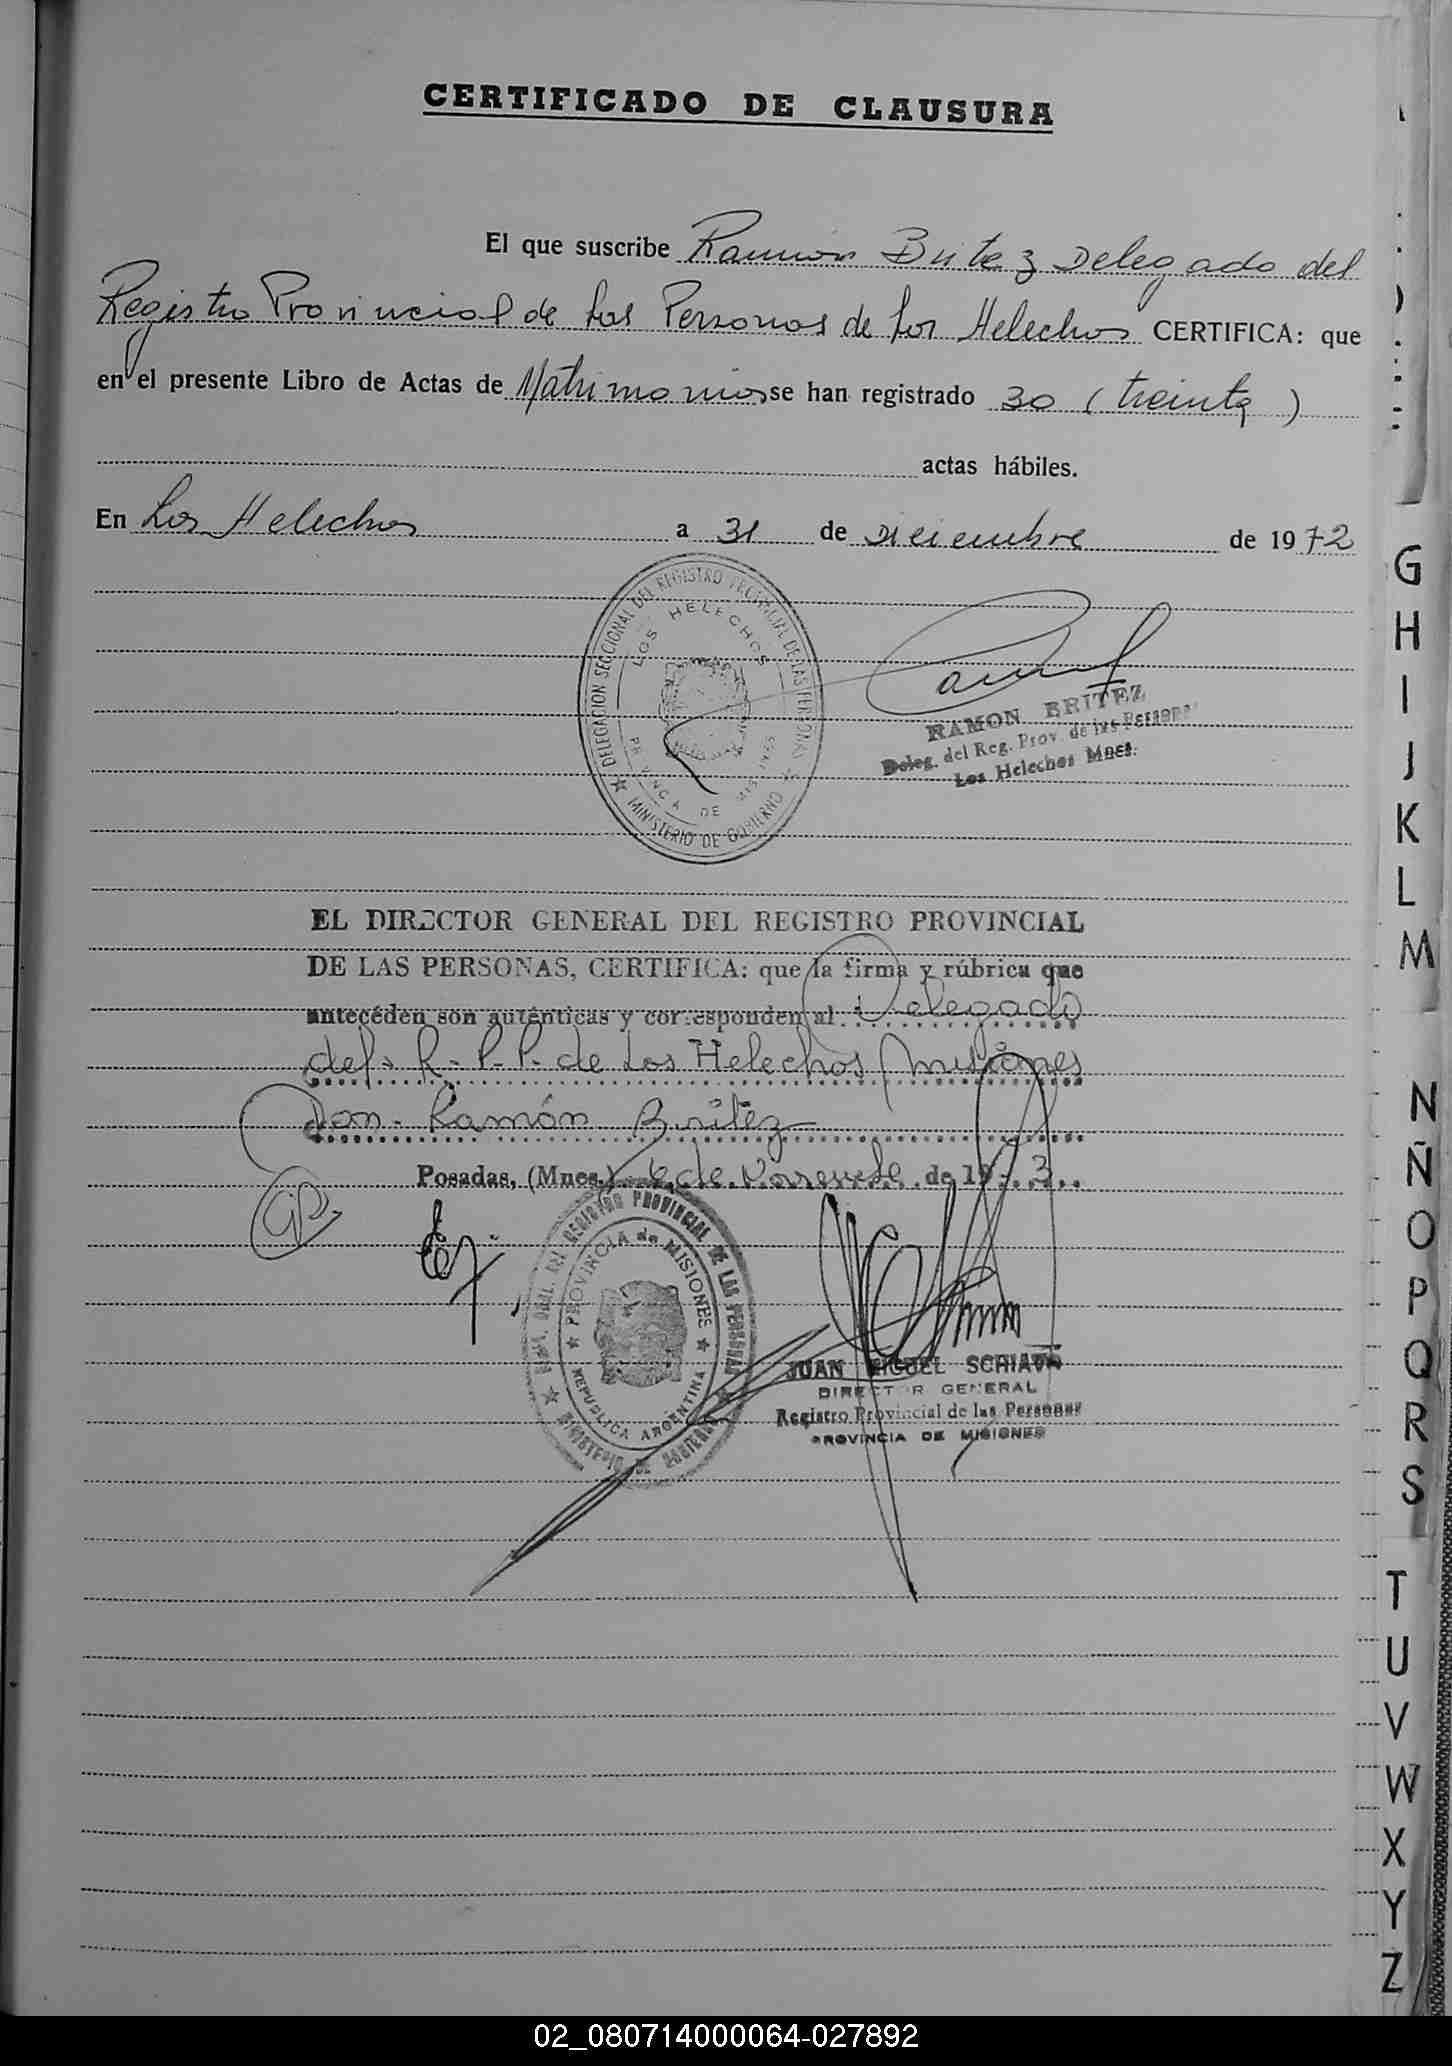 CERTIFICADO DE CLAUSURA
El que suscribe Ramón Britez Delegado del
Registro Provincial de las Personas de Los Helechos CERTIFICA: que
en el presente Libro de Actas de Matrimonios se han registrado 30 (treinta)
actas hábiles.
En Los Helechos a 31 de Diciembre de 1972
DELEGACION SECCIONAL DEL REGISTRO PROVINCIAL DE LAS PERSONAS
LOS HELECHOS
PROVINCIA DE MISIONES
MINISTERIO DE GOBIERNO
RAMON BRITEZ
Deleg. del Reg. Prov. de las Personas
Los Helechos Mnes.
EL DIRECTOR GENERAL DEL REGISTRO PROVINCIAL
DE LAS PERSONAS, CERTIFICA: que la firma y rúbrica que
antecéden son auténticas y corresponden al Delegado
del R.P.P. de Los Helechos Misiones
Don Ramón Britez
Posadas, (Mnes.) 6 de Noviembre de 1973
REGISTRO PROVINCIAL DE LAS PERSONAS
PROVINCIA de MISIONES
REPUBLICA ARGENTINA
MINISTERIO DE GOBIERNO
JUAN MIGUEL
DIRECTOR GENERAL
Registro Provincial de las Personas
PROVINCIA DE MISIONES
G
H
I
J
K
L
M
N
Ñ
O
P
Q
R
S
T
U
V
W
X
Y
Z
02_080714000064-027892